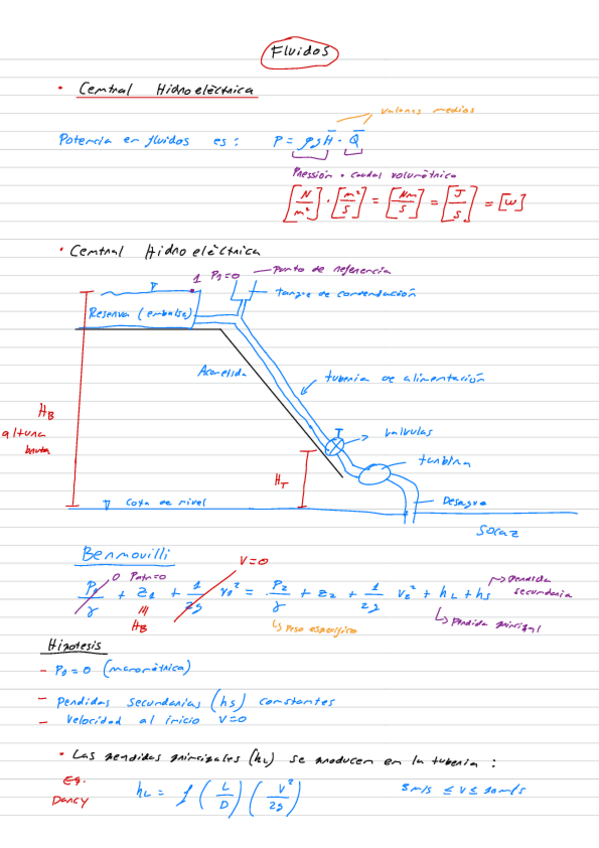 Fluidos
• Central Hidroeléctrica
valores medios
Potencia en fluidos es: P = ρg H̄ · Q̄
Pressión · caudal volumétrica
[N/m²] · [m³/s] = [Nm/s] = [J/s] = [W]
• Central Hidroeléctrica
1 P₁=0 — punto de referencia
tanque de condendación
Reserva (embalse)
Acometida
tuberia de alimentación
H_B
altura
bruta
valvulas
turbina
H_T
Desague
cota de nivel
Socaz
Bernouilli
0 Patm=0
V=0
P₁/γ + z₁ + 1/2g v₁² = P₂/γ + z₂ + 1/2g v₂² + h_L + h_s
perdida
secundaria
H_B
peso especifico
perdida principal
Hipotesis
- P₁=0 (manométrica)
- Perdidas secundarias (hs) constantes
- Velocidad al inicio V=0
• Las perdidas principales (h_L) se producen en la tuberia:
Eq.
Darcy
h_L = f (L/D) (V²/2g)